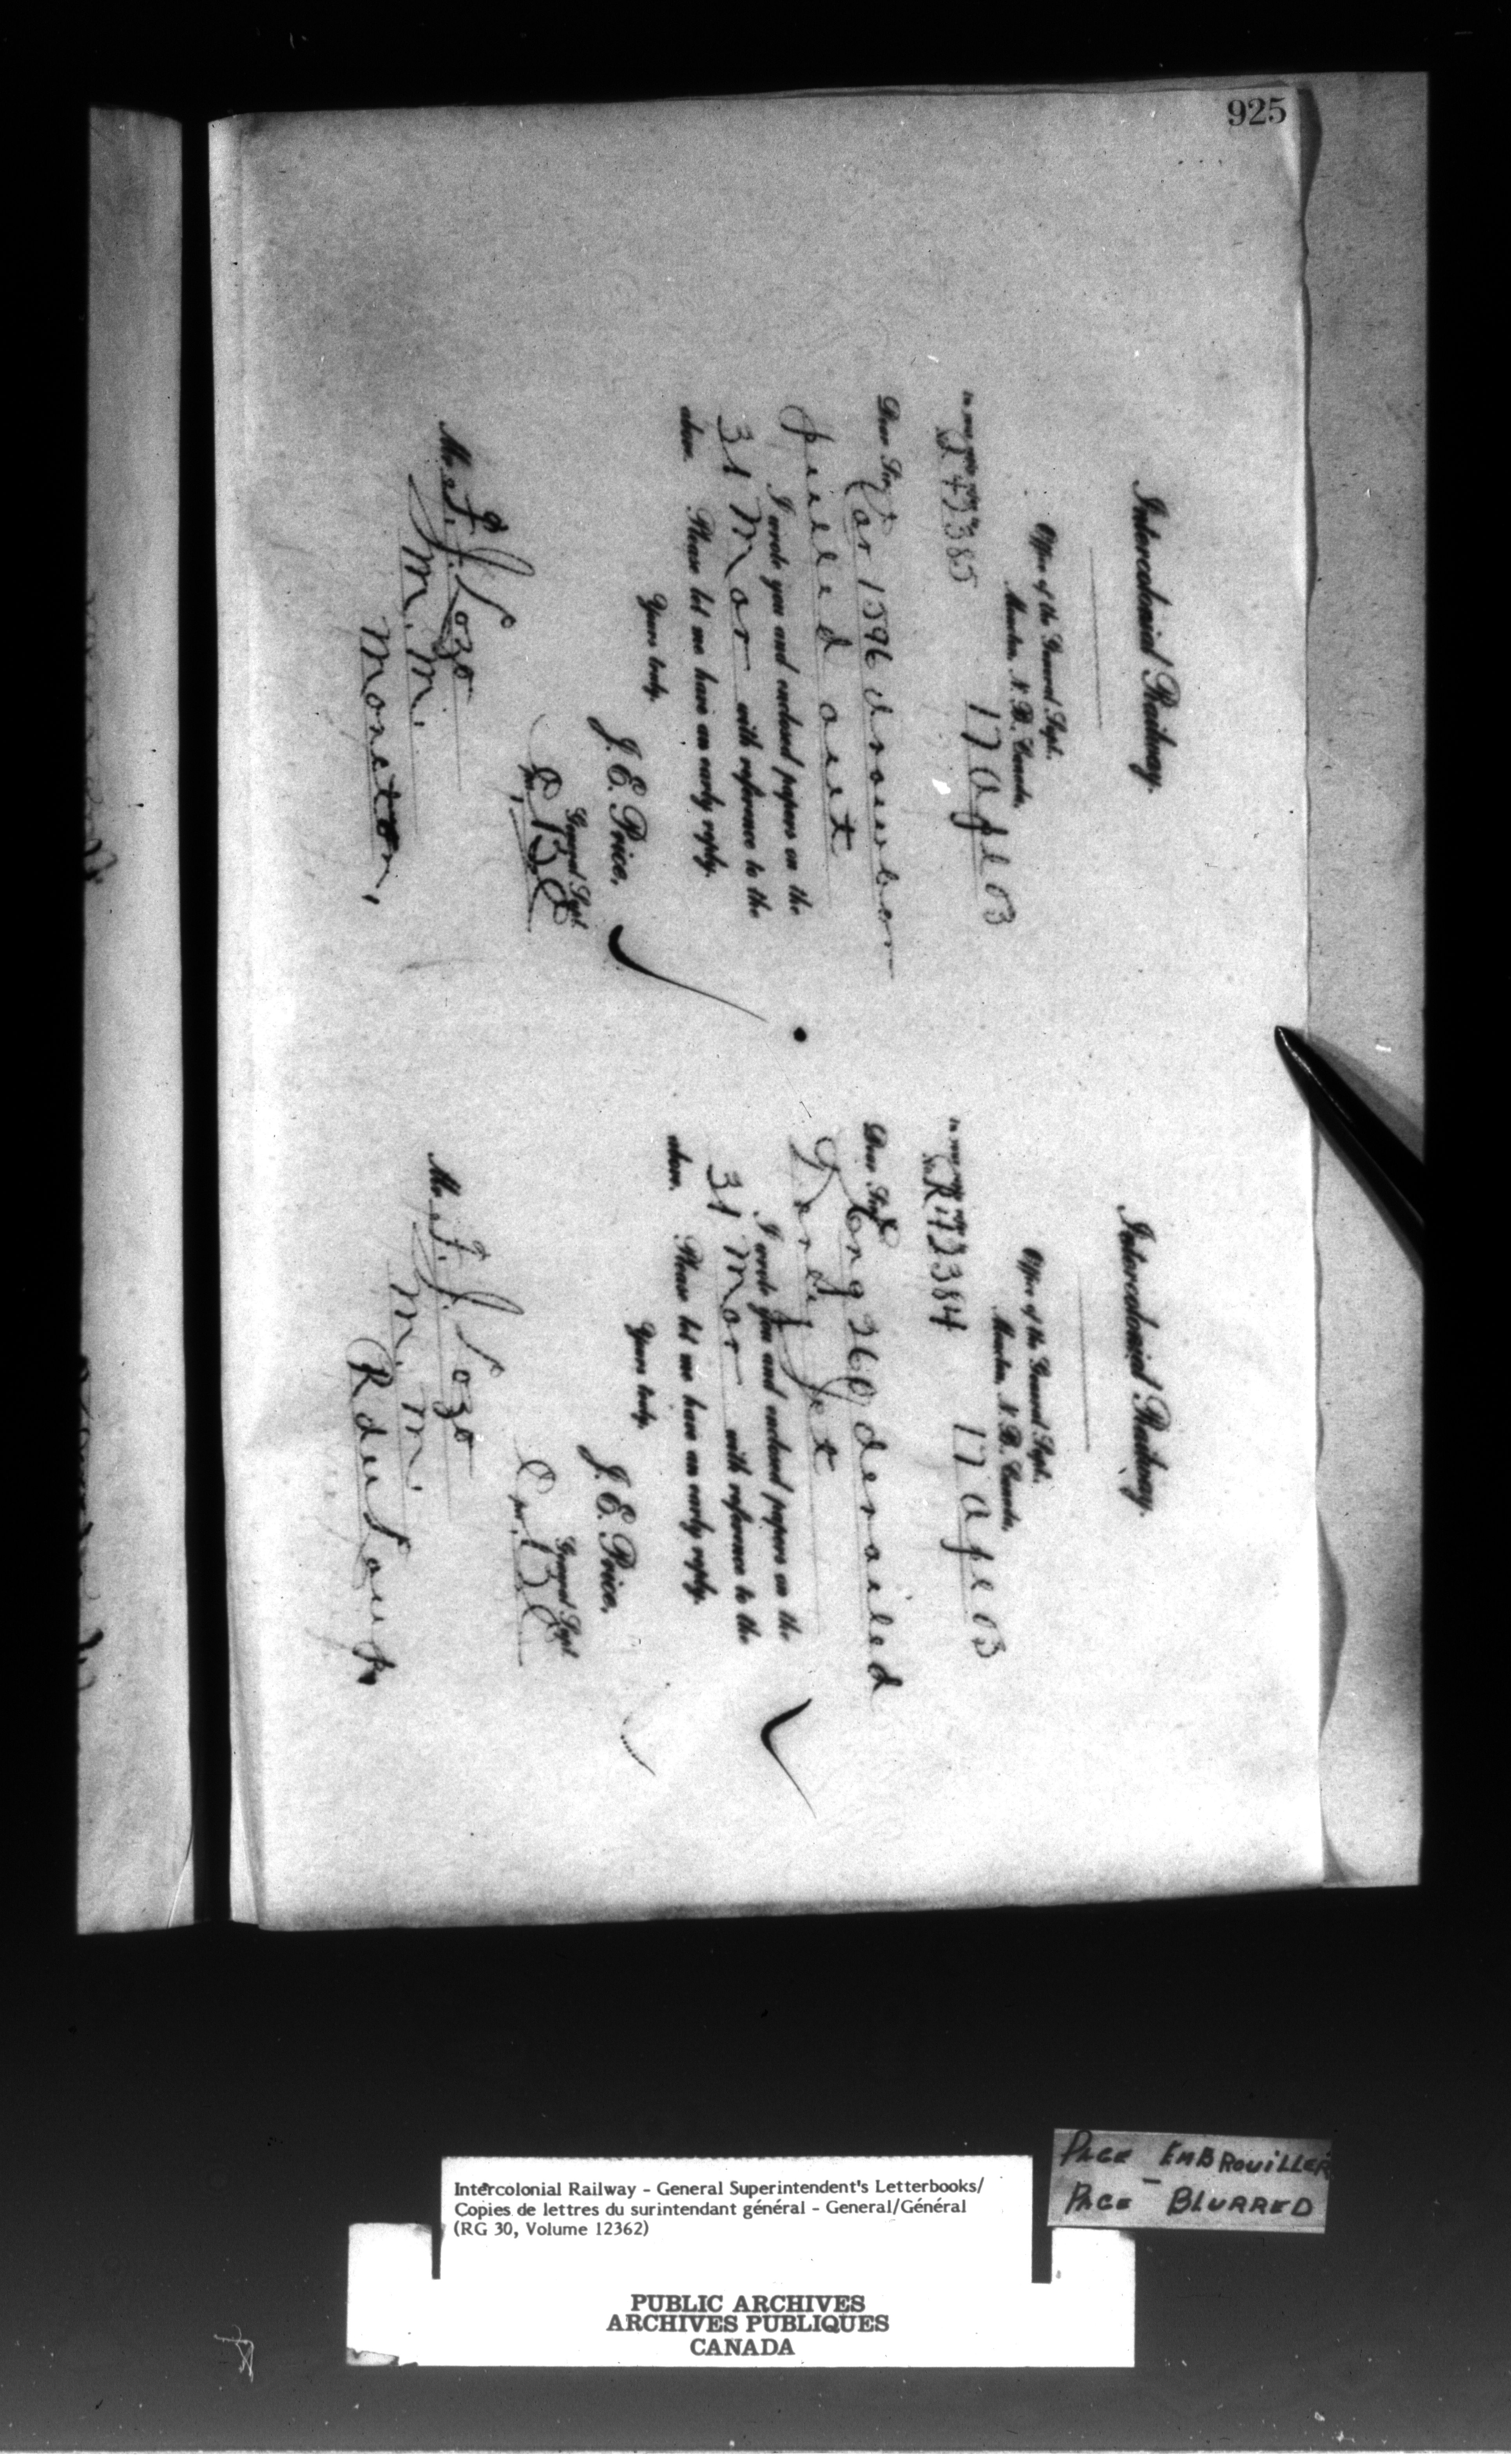 925
Intercolonial Railway.
Office of the General Supt.
Moncton, N. B., Canada,
17 Apl 03
In my reply refer to
No. J 42385
Dear Sir,
Car 1596 drawbar
pulled out
I wrote you and enclosed papers on the
31 Mar with reference to the
above. Please let me have an early reply.
Yours truly,
J. E. Price,
General Supt.
Per,
Mr. F. J. Lozo
M. M.
Moncton,
Intercolonial Railway.
Office of the General Supt.
Moncton, N. B., Canada,
17 Apl 03
In my reply refer to
No. R 42384
Dear Sir,
Eng 260 derailed
Jct
I wrote you and enclosed papers on the
31 Mar with reference to the
above. Please let me have an early reply.
Yours truly,
J. E. Price,
General Supt.
Per,
Mr. F. J. Lozo
M. M.
R du Loup
PAGE EMBROUILLER
-
PAGE BLURRED
Intercolonial Railway - General Superintendent's Letterbooks/
Copies de lettres du surintendant général - General/Général
(RG 30, Volume 12362)
PUBLIC ARCHIVES
ARCHIVES PUBLIQUES
CANADA